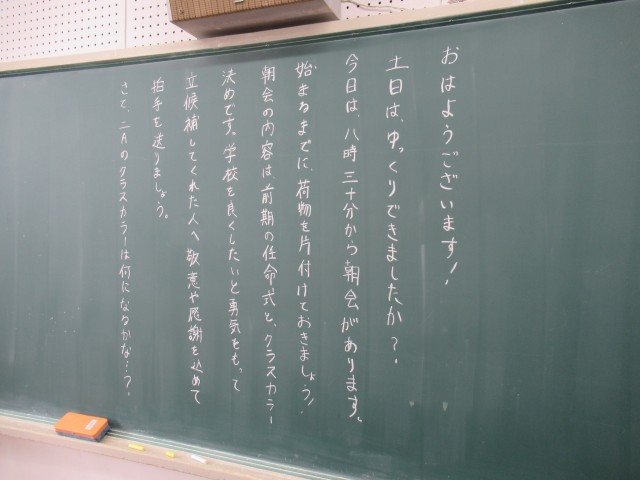 おはようございます!
土日は、ゆっくりできましたか?
今日は、八時三十分から朝会があります。
始まるまでに、荷物を片付けておきましょう!
朝会の内容は前期の任命式と、クラスカラー
決めです。学校を良くしたいと勇気をもって
立候補してくれた人へ敬意や感謝を込めて
拍手を送りましょう。
さて、二Aのクラスカラーは何になるかな…?